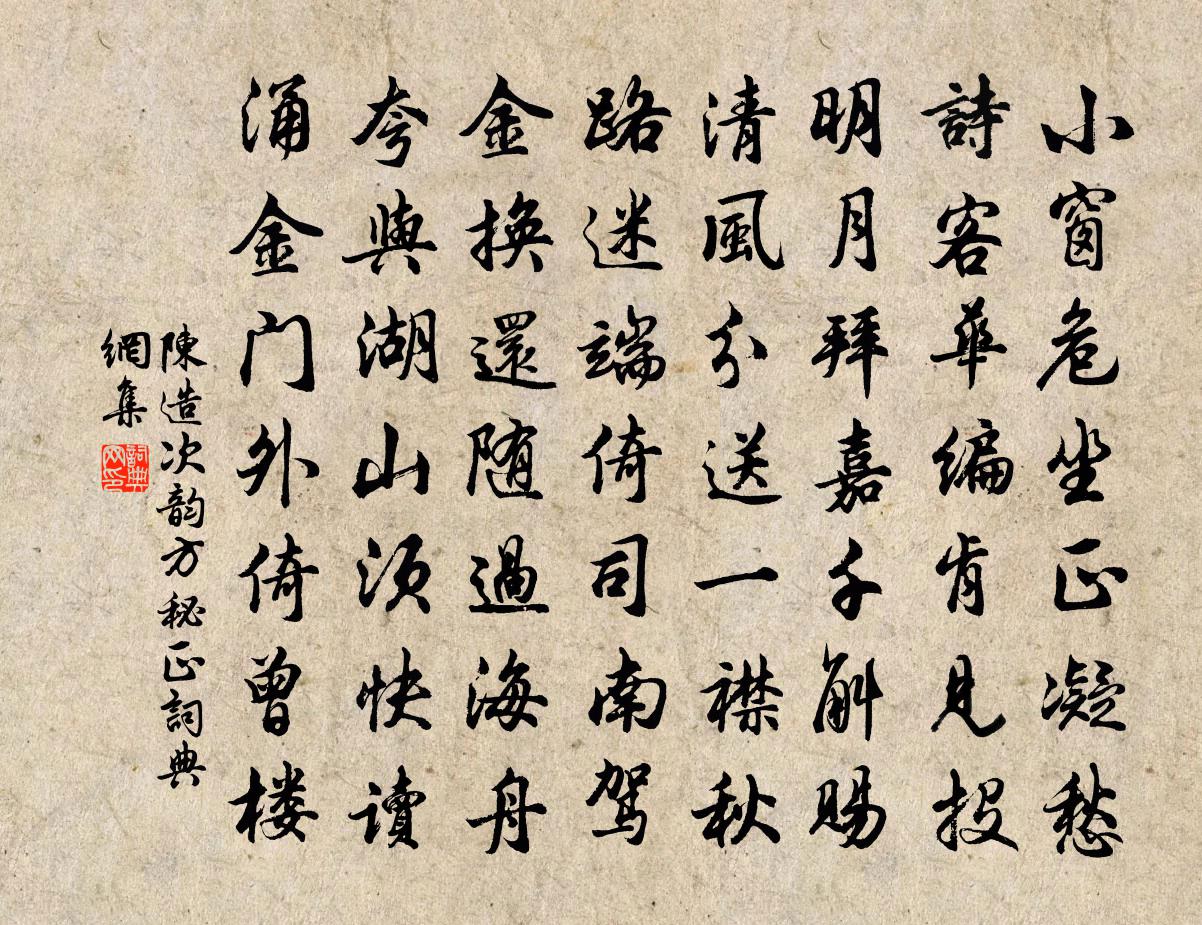 小窗危坐正凝愁
詩客華编肯見投
明月拜嘉千斛賜
清風分送一襟秋
路迷端倚司南駕
金換還随過海舟
夸與湖山须快讀
涌金门外倚曾楼
陳造次韵方秘正詞典
網集
詞典
网印